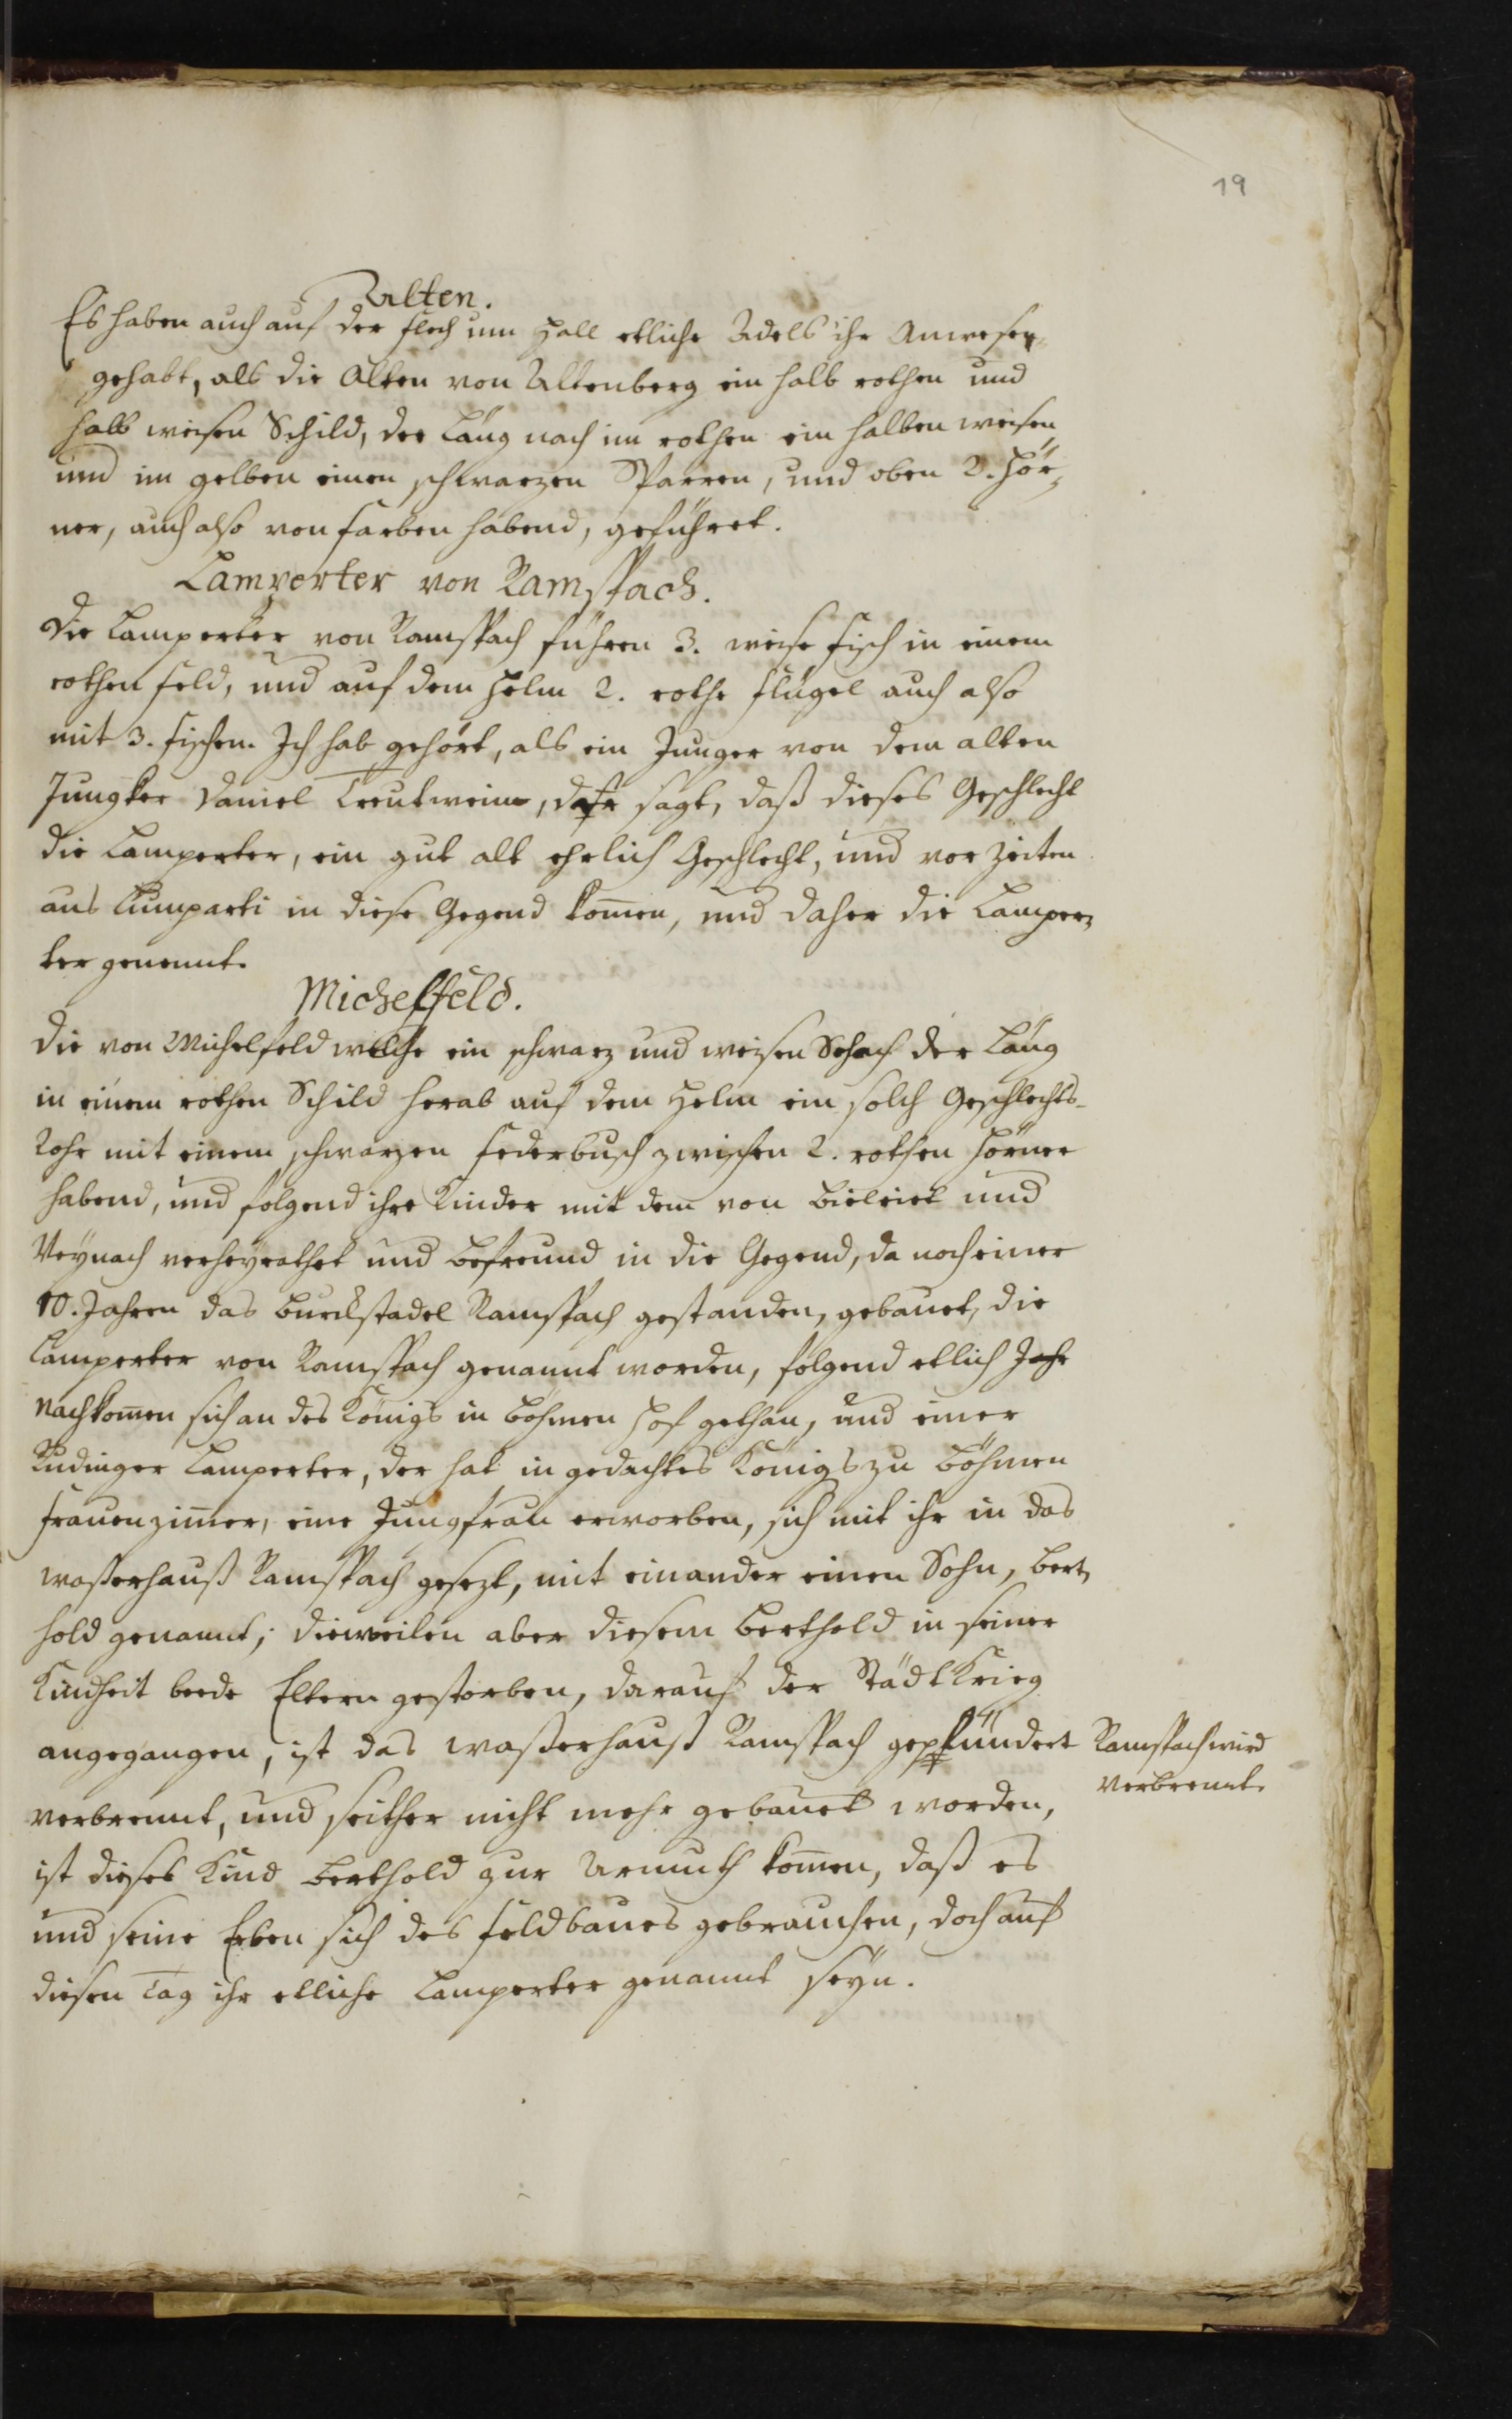 19
Alten.
Es haben auch auf der flech um Hall etliche Adels ihr Anwesen
gehabt, als die Alten von Altenberg ein halb rothen und
halb weisen Schild, der Läng nach im rothen ein halben weisen
und im gelben einen schwarzen Sparren, und oben 2. Hör-
ner, auch also von farben habend, geführet.
Lamperter von Ramspach.
Die Lamperter von Ramspach führen 3. weise fisch in einem
rothen feld, und auf dem Helm 2. rothe flügel auch also
mit 3. fischen. Ich hab gehört, als ein Junger von dem alten
Jungker Daniel Treutwein, sagt, daß dieses Geschlecht
die Lamperter, ein gut alt ehrlich Geschlecht, und vor Zeiten
aus Lumparti in diese Gegend kom̅en, und daher die Lamper-
ter genennt.
Michelfeld.
Die von Michelfeld welche ein schwarz und weisen Schach der Läng
in einem rothen Schild herab auf dem Helm ein solch Geschlechts-
Rohr mit einem schwarzen federbusch zwischen 2. rothen Hörner
habend, und folgend ihre Kinder mit dem von Bielriet und
Veynach verheyrathet und befreund in die Gegend, da noch einer
10. Jahren das Burckstadel Ramspach gestanden, gebauet, die
Lamperter von Ramspach genannt worden, folgend etlich Jahr
Nachkom̅en sich an des Königs in Böhmen Hof gethan, und einer
Rudinger Lamperter, der hat in gedachtes Königs zu Böhmen
frauenzim̅er, eine Jungfrau erworben, sich mit ihr in das
wasserhauß Ramspach gesezt, mit einander einen Sohn, Bert-
hold genannt; dieweilen aber diesem Berthold in seiner
Kindheit beede Eltern gestorben, darauf der StädtKrieg
angegangen, ist das wasserhauß Ramspach geplündert
verbrennt, und seither nicht mehr gebauet worden,
ist dieses Kind Berthold zur Armuth kom̅en, daß es
und seine Erben sich des feldbaues gebrauchen, doch auf
diesen Tag ihr etliche Lamperter genannt seyn.
Ramspach wird
verbrennt.